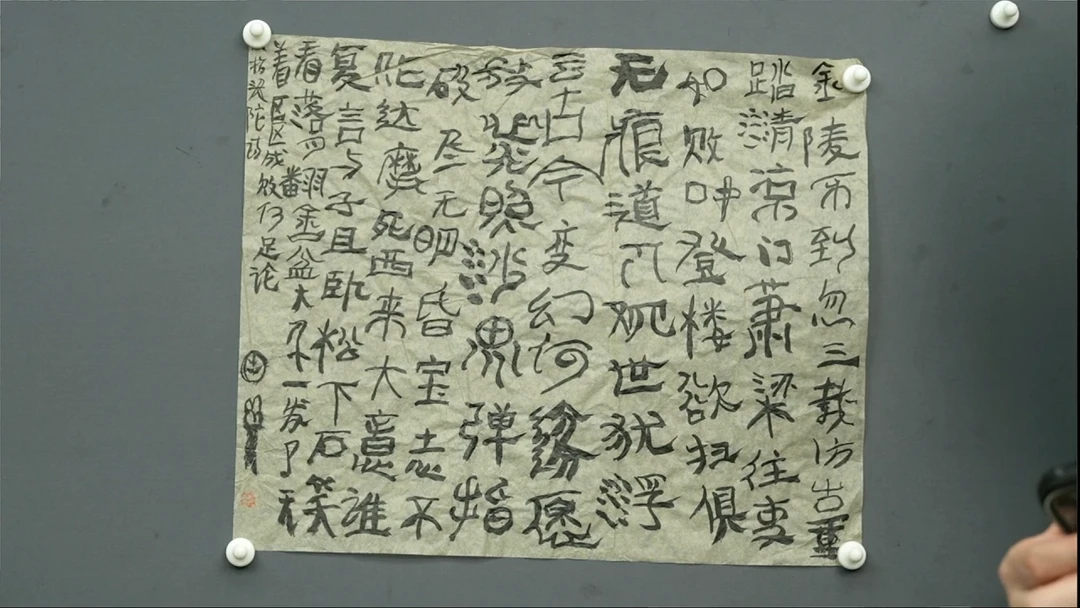 金陵不到忽三载访古重
踏清凉门萧梁往事
如败叶登楼欲扫俱
无痕道人观世犹浮
云古今变幻何纷愿
光照沙界弹指
破尽无明昏宝志不
达磨死西来大意谁
复言与子且卧松下石笑
看落月翻金盆大千一发了
着区区成败何足论
头陀诗